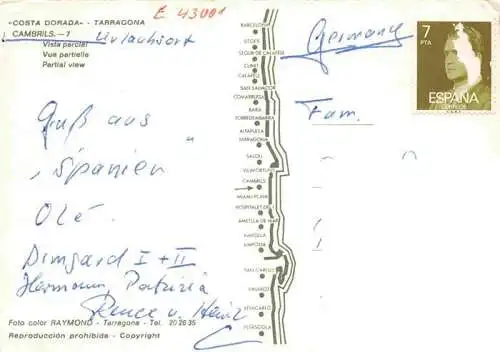 "COSTA DORADA" - TARRAGONA
E 43001
CAMBRILS.-7 Urlaubsort
Vista parcial
Vue partielle
Partial view
Gruß aus
Spanien
Olé
Irmgard I + II
Hermann Patrizia
Renee u. Heinz
Foto color RAYMOND - Tarragona - Tel. 20 26 35
Reproducción prohibida - Copyright
BARCELONA
SITGES
CUNIT
CALAFELL
SAN SALVADOR
COMARRUGA
BARA
TORREDEMBARRA
ALTAFULLA
TARRAGONA
SALOU
VILAFORTUNY
CAMBRILS
MIAMI PLAYA
AMETLLA DE MAR
AMPOLLA
AMPOSTA
SAN CARLOS
VINAROZ
BENICARLO
PEÑISCOLA
Germany
Fam.
7
PTA
ESPAÑA
CORREOS